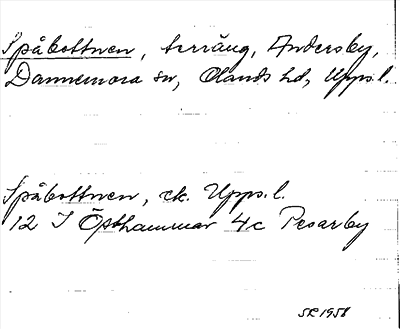 Spåbottnen, terräng, Andersby,
Dannemora sn, Olands hd, Upps. l.
Spåbottnen, ek. Upps. l.
12 I Östhammar 4c Pesarby
SR 1958